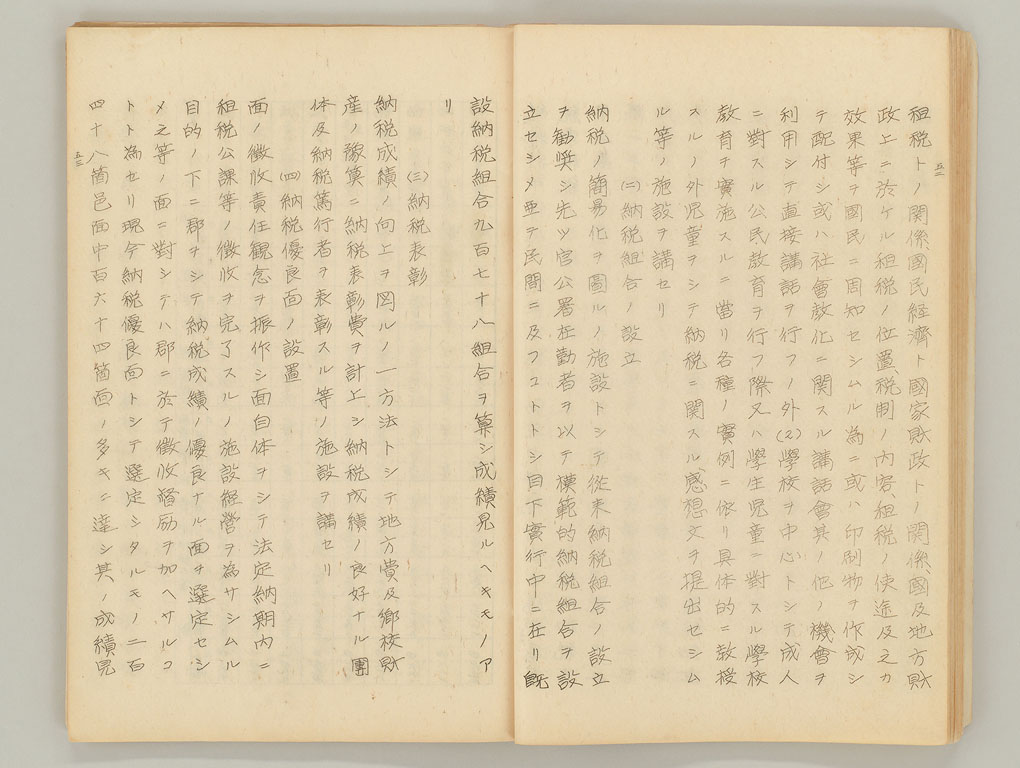 五二
租税トノ関係國民経済ト國家財政トノ関係國及地方財
政上ニ於ケル租税ノ位置、税制ノ内容、租税ノ使途及之カ
效果等ヲ國民ニ周知セシムル為ニ或ハ印刷物ヲ作成シ
テ配付シ或ハ社會教化ニ関スル講話會其ノ他ノ機會ヲ
利用シテ直接講話ヲ行フノ外(2)學校ヲ中心トシテ成人
ニ對スル公民教育ヲ行フ際又ハ學生児童ニ對スル學校
教育ヲ實施スルニ當リ各種ノ實例ニ依リ具体的ニ教授
スルノ外児童ヲシテ納税ニ関スル感想文ヲ提出セシム
ル等ノ施設ヲ講セリ
(二)納税組合ノ設立
納税ノ簡易化ヲ圖ルノ施設トシテ従来納税組合ノ設立
ヲ勧奨シ先ツ官公署在勤者ヲ以テ模範的納税組合ヲ設
立セシメ亜テ民間ニ及フコトトシ目下實行中ニ在リ既
設納税組合九百七十八組合ヲ算シ成績見ルヘキモノア
リ
(三)納税表彰
納税成績ノ向上ヲ図ルノ一方法トシテ地方費及鄉校財
産ノ豫算ニ納税表彰費ヲ計上シ納税成績ノ良好ナル團
体及納税篤行者ヲ表彰スル等ノ施設ヲ講セリ
(四)納税優良面ノ設置
面ノ徴收責任観念ヲ振作シ面自体ヲシテ法定納期内ニ
租税公課等ノ徴收ヲ完了スルノ施設経営ヲ為サシムル
目的ノ下ニ郡ヲシテ納税成績ノ優良ナル面ヲ選定セシ
メ之等ノ面ニ對シテハ郡ニ於テ徴收督励ヲ加ヘサルコ
トト為セリ現今納税優良面トシテ選定シタルモノ二百
四十八箇邑面中百六十四箇面ノ多キニ達シ其ノ成績見
五三